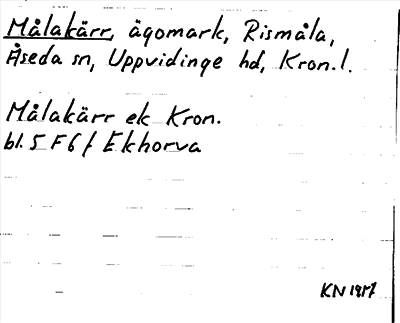 Målakärr, ägomark, Rismåla,
Åseda sn, Uppvidinge hd, Kron.l.
Målakärr ek Kron.
bl. 5 F 6 f Ekhorva
KN